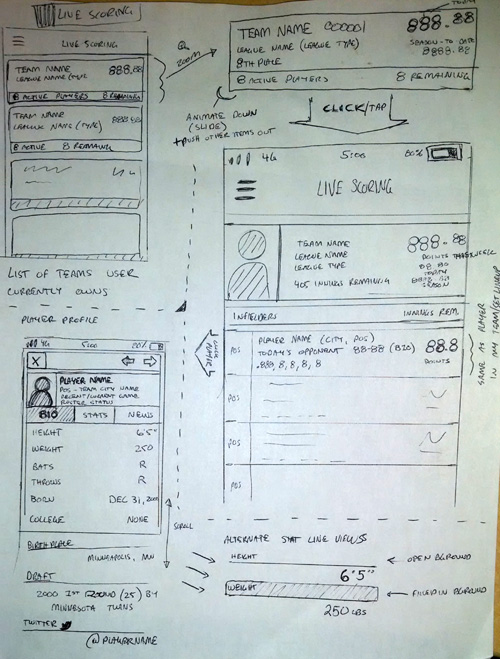 LIVE SCORING
LIVE SCORING
TEAM NAME 888.88
LEAGUE NAME (TYPE)
8 ACTIVE PLAYERS 8 REMAINING
TEAM NAME
LEAGUE NAME (TYPE)
8 ACTIVE 8 REMAINING
LIST OF TEAMS USER
CURRENTLY OWNS
ZOOM
TODAY
TEAM NAME 888.88
LEAGUE NAME (LEAGUE TYPE) SEASON-TO-DATE
8TH PLACE 8888.88
8 ACTIVE PLAYERS 8 REMAINING
ANIMATE DOWN
(SLIDE)
+ PUSH OTHER ITEMS OUT
CLICK/TAP
4G 5:00 80%
LIVE SCORING
TEAM NAME 888.88
LEAGUE NAME POINTS THIS WEEK
LEAGUE TYPE 88.88
TODAY
405 INNINGS REMAINING
SEASON
INFIELDERS INNINGS REM.
POS
PLAYER NAME (CITY, POS)
TODAY'S OPPONENT 88-88 (BIO) 88.8
.888, 8, 8, 8, 8 POINTS
POS
POS
POS
SAME AS PLAYER
IN MY TEAM/SET LINEUP
CLICK
NAME
PLAYER PROFILE
4G 5:00 80%
X
PLAYER NAME
POS - TEAM CITY NAME
RECENT/CURRENT GAME
ROSTER STATUS
BIO STATS NEWS
HEIGHT 6'5"
WEIGHT 250
BATS R
THROWS R
BORN DEC 31,
COLLEGE NONE
BIRTHPLACE
MINNEAPOLIS, MN
DRAFT
2000 1ST ROUND (25) BY
MINNESOTA TWINS
TWITTER
@PLAYERNAME
SCROLL
ALTERNATE STAT LINE VIEWS
HEIGHT
6'5"
OPEN BGROUND
WEIGHT
FILLED IN BGROUND
250 LBS